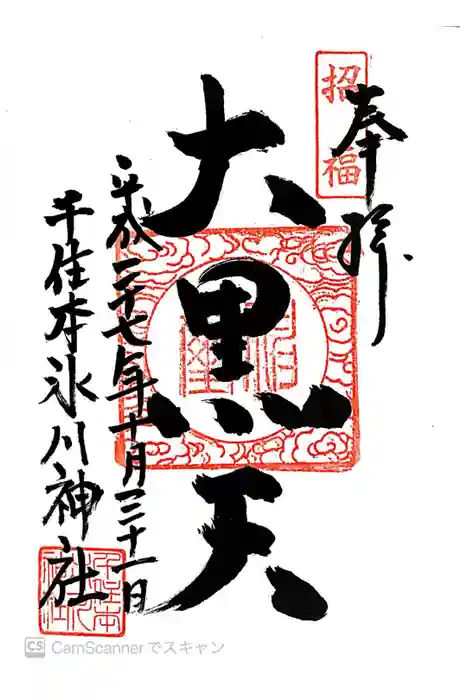 招福
奉拝
大黒天
平成二十七年十月三十一日
千住本氷川神社
CS CamScannerでスキャン